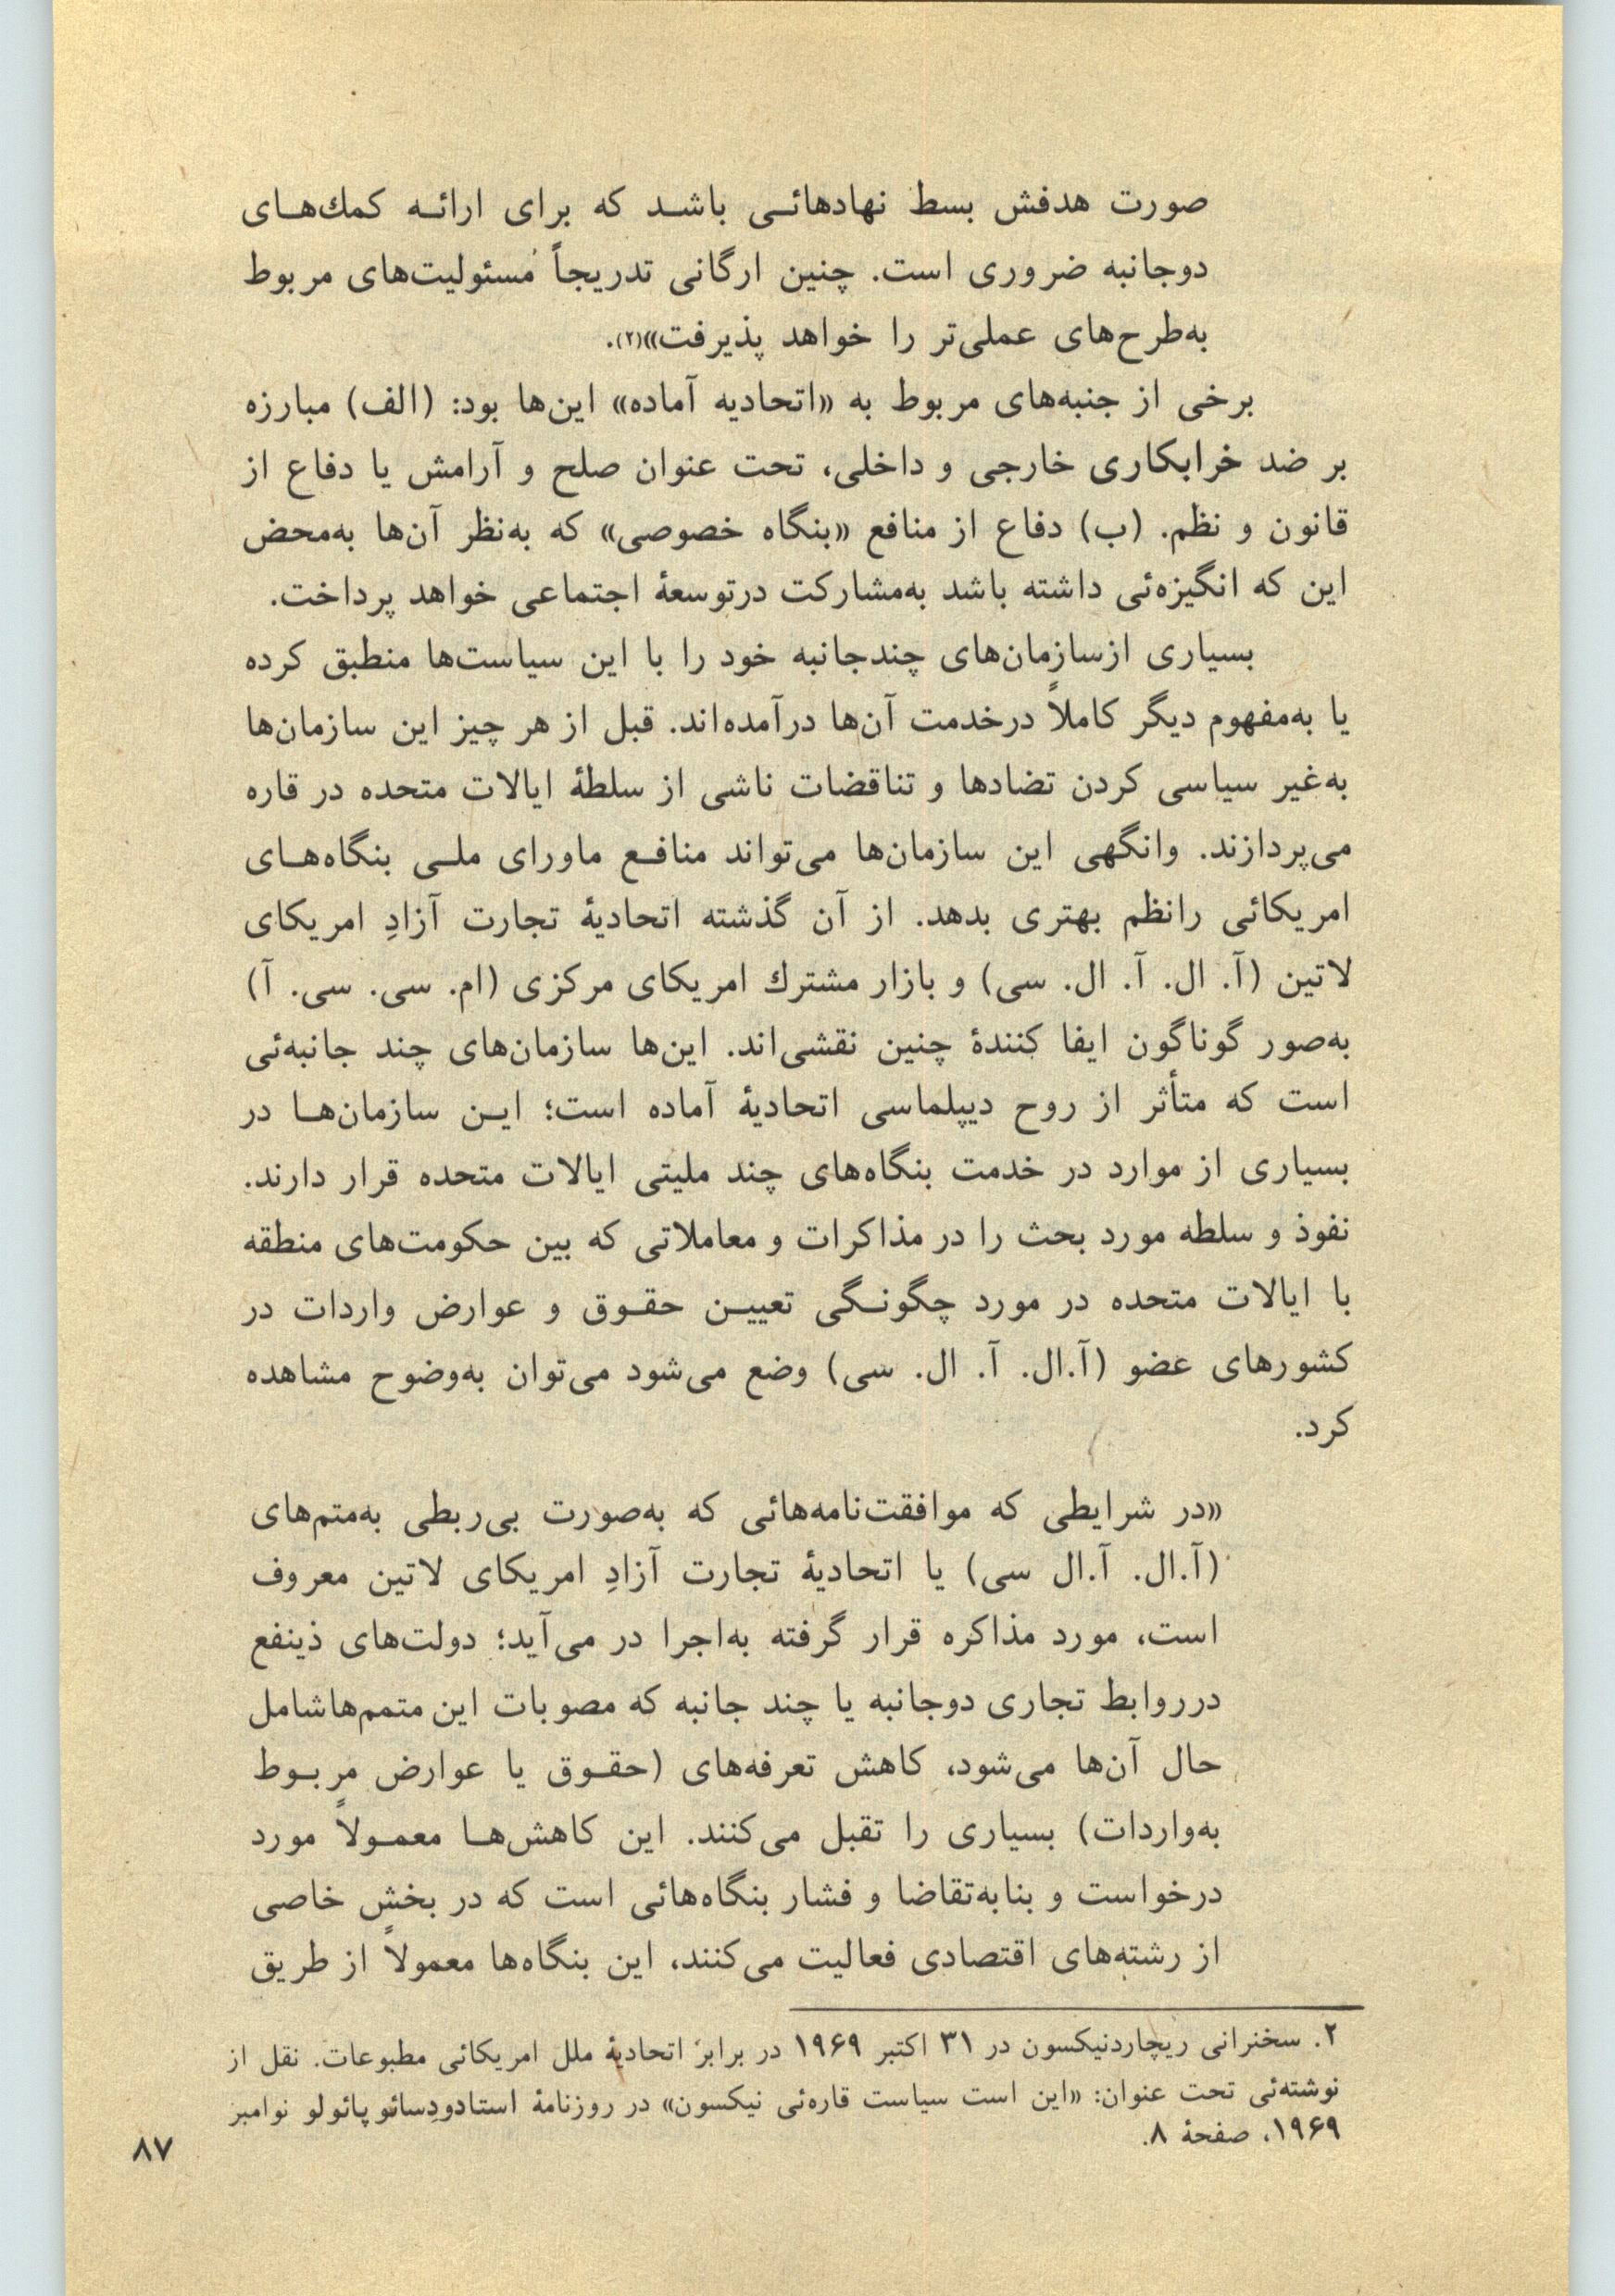 صورت هدفش بسط نهادهائی باشد که برای ارائه کمك‌های
دوجانبه ضروری است. چنین ارگانی تدریجاً مُسئولیت‌های مربوط
به‌طرح‌های عملی‌تر را خواهد پذیرفت»(۲).
برخی از جنبه‌های مربوط به «اتحادیه آماده» این‌ها بود: (الف) مبارزه
بر ضد خرابکاری خارجی و داخلی، تحت عنوان صلح و آرامش یا دفاع از
قانون و نظم. (ب) دفاع از منافع «بنگاه خصوصی» که به‌نظر آن‌ها به‌محض
این که انگیزه‌ئی داشته باشد به‌مشارکت درتوسعهٔ اجتماعی خواهد پرداخت.
بسیاری ازسازمان‌های چندجانبه خود را با این سیاست‌ها منطبق کرده
یا به‌مفهوم دیگر کاملاً درخدمت آن‌ها درآمده‌اند. قبل از هر چیز این سازمان‌ها
به‌غیر سیاسی کردن تضادها و تناقضات ناشی از سلطهٔ ایالات متحده در قاره
می‌پردازند. وانگهی این سازمان‌ها می‌تواند منافع ماورای ملی بنگاه‌های
امریکائی رانظم بهتری بدهد. از آن گذشته اتحادیهٔ تجارت آزادِ امریکای
لاتین (آ. ال. آ. ال. سی) و بازار مشترك امریکای مرکزی (ام. سی. سی. آ)
به‌صور گوناگون ایفا کنندهٔ چنین نقشی‌اند. این‌ها سازمان‌های چند جانبه‌ئی
است که متأثر از روح دیپلماسی اتحادیهٔ آماده است؛ این سازمان‌ها در
بسیاری از موارد در خدمت بنگاه‌های چند ملیتی ایالات متحده قرار دارند.
نفوذ و سلطه مورد بحث را در مذاکرات و معاملاتی که بین حکومت‌های منطقه
با ایالات متحده در مورد چگونگی تعیین حقوق و عوارض واردات در
کشورهای عضو (آ.ال. آ. ال. سی) وضع می‌شود می‌توان به‌وضوح مشاهده
کرد.
«در شرایطی که موافقت‌نامه‌هائی که به‌صورت بی‌ربطی به‌متم‌های
(آ.ال. آ.ال سی) یا اتحادیهٔ تجارت آزادِ امریکای لاتین معروف
است، مورد مذاکره قرار گرفته به‌اجرا در می‌آید؛ دولت‌های ذینفع
درروابط تجاری دوجانبه یا چند جانبه که مصوبات این متمم‌هاشامل
حال آن‌ها می‌شود، کاهش تعرفه‌های (حقوق یا عوارض مربوط
به‌واردات) بسیاری را تقبل می‌کنند. این کاهش‌ها معمولاً مورد
درخواست و بنابه‌تقاضا و فشار بنگاه‌هائی است که در بخشِ خاصی
از رشته‌های اقتصادی فعالیت می‌کنند، این بنگاه‌ها معمولاً از طریق
۲. سخنرانی ریچاردنیکسون در ۳۱ اکتبر ۱۹۶۹ در برابر اتحادیهٔ ملل امریکائی مطبوعات. نقل از
نوشته‌ئی تحت عنوان: «این است سیاست قاره‌ئی نیکسون» در روزنامهٔ استادودِسائوپائولو نوامبر
۱۹۶۹، صفحهٔ ۸.
۸۷